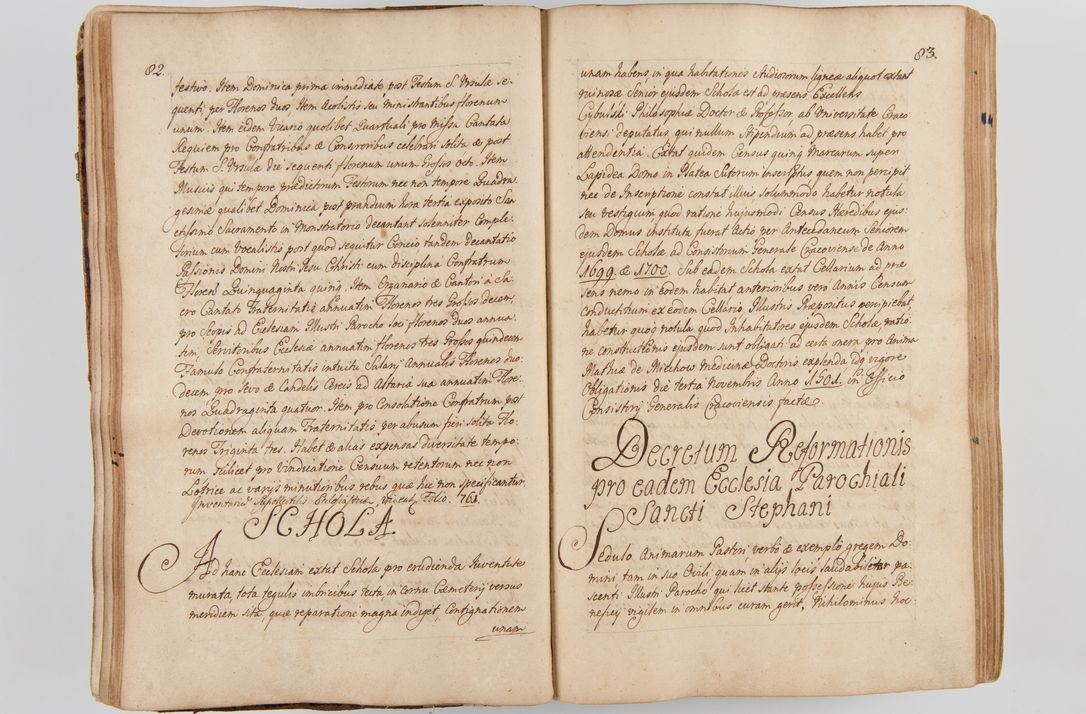 82.
festivo. Item Dominica prima immediatè post Festum S. Ursulæ se-
quenti per Florenos duos, Item Acolitis seu Ministrantibus florenum
unum. Item eidem Vicario quolibet Quartuali pro Missa Cantata
Requiem pro Confratribus & Consororibus celebrari solita & post
Festum S. Ursulæ die sequenti florenum unum Grossos octo. Item
Musicis qui tempore prædictorum Festorum nec non tempore Quadra-
gesimæ qualibet Dominica post prandium hora tertia exposito San-
ctissimo Sacramento in Monstratorio decantant solenniter Comple-
torium cum Vocalistis post quod sequitur Concio tandem decantatio
Passionis Domini Nostri Jesu Christi cum disciplina Confratrum
Floren: Quinquaginta quinq. Item Organario & Cantori à cla-
ro Cantatis Fraternitatis annuatim Florenos tres Grossos decem,
pro Scopis ad Ecclesiam Illustri Parocho loci florenos duos annua-
tim Servitoribus Ecclesiæ annuatim florenos tres Grossos quindecim
Famulo Confraternitatis intuitu Salarij Annualis Florenos duo-
decem pro Sevo & Candelis Cereis ad Altaria sua annuatim Flore-
nos Quadraginta quatuor. Item pro Consolatione Confratrum post
Devotionem aliquam Fraternitatis per abusum fieri solita Flo-
renos Triginta tres. Habet & alias expensas diversitate tempo-
rum scilicet pro Vindicatione Censuum retentorum nec non
Lotrice ac varijs minutioribus rebus quæ hic non specificantur.
Inventariū Suppellectilis Ecclesiasticæ vide Folio. 761.
SCHOLA
Ad hanc Ecclesiam extat Schola pro erudienda Juventute
murata, tota tegulis imbricibus tecta in cornu Cæmeterij versus
meridiem sita, quæ reparatione magna indiget, Contignationem
unam
83.
unam habens, in qua habitationes studiosorum ligneæ aliquot extant
ruinosæ Senior ejusdem Scholæ est ad præsens Excellens
Cybulski Philosophiæ Doctor & Professor, ab Universitate Craco-
viensi deputatus qui nullum stipendium ad præsens habet pro
attendentia. Extat quidem Census quinq Marcarum super
Lapidea Domo in Platea Sutorum inscriptus quem non percipit
nec de Inscriptione constat illius solummodo habetur notula
seu vestigium quod ratione hujusmodi Census Hæredibus ejus-
dem Domus instituta fuerat Actio per Antecedaneum Seniorem
ejusdem Scholæ ad Consistorium Generale Cracoviense de Anno
1699. & 1700. Sub eadem Schola extat Cellarium ad præ-
sens nemo in eodem habitat anterioribus verò Annis Censum
conductitium ex eodem Cellario Illustris Præpositus percipiebat
habetur quoq notula quod Inhabitatores ejusdem Scholæ ratio-
ne constructionis ejusdem sunt obligati ad certa onera pro Anima
Mathiæ de Miechow medicinæ Doctoris explenda idq vigore
Obligationis die tertia Novembris Anno 1501. in Officio
Consistorij Generalis Cracoviensis factæ.
Decretum Reformationis
pro eadem Ecclesia Parochiali
Sancti Stephani
Sedulo animarum Pastori verbô & exemplô gregem Do-
mini tam in suo Ovili quam in alijs locis laudabiliter pa-
scenti Illustri Parochô qui licet stante possessione hujus Be-
neficij vigilem in omnibus curam gerit, Nihilominus hoc